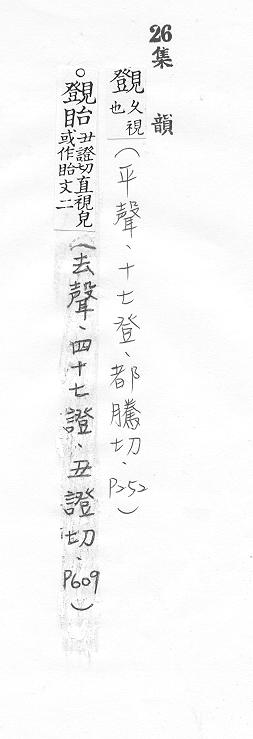 26集韻
覴久視也(平聲、十七登、都騰切、P252)
○覴眙丑證切直視皃或作眙文二(去聲、四十七證、丑證切、P609)